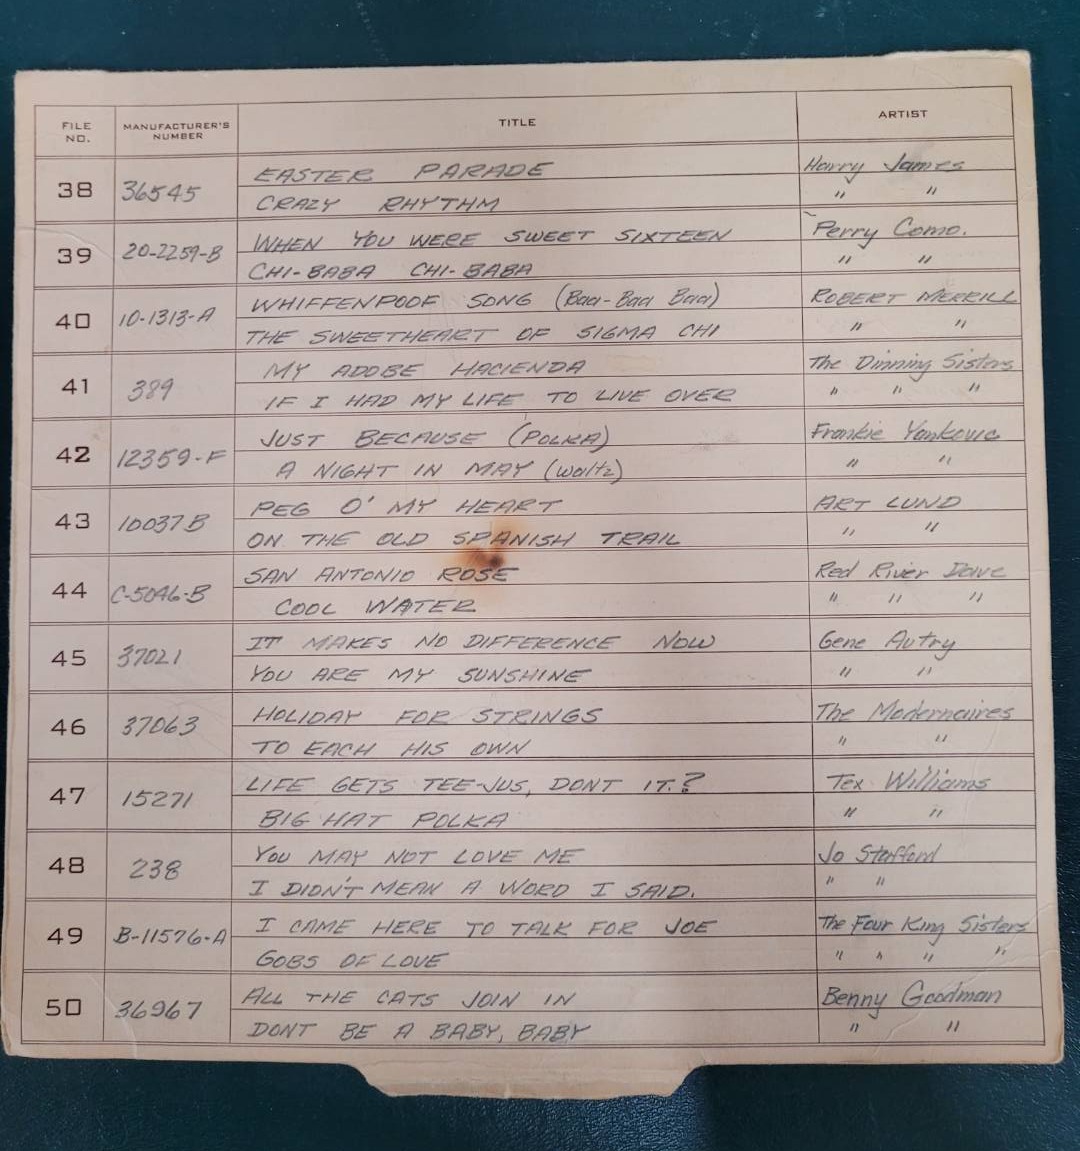 FILE NO. MANUFACTURER'S NUMBER TITLE ARTIST
38 36545 EASTER PARADE Harry James
CRAZY RHYTHM " "
39 20-2259-B WHEN YOU WERE SWEET SIXTEEN Perry Como.
CHI-BABA CHI-BABA " "
40 10-1313-A WHIFFENPOOF SONG (Baa-Baa Baa) ROBERT MERRILL
THE SWEETHEART OF SIGMA CHI " "
41 389 MY ADOBE HACIENDA The Dinning Sisters
IF I HAD MY LIFE TO LIVE OVER " " "
42 12359-F JUST BECAUSE (POLKA) Frankie Yankovic
A NIGHT IN MAY (Waltz) " "
43 10037B PEG O' MY HEART ART LUND
ON THE OLD SPANISH TRAIL " "
44 C-5046-B SAN ANTONIO ROSE Red River Dave
COOL WATER " " "
45 37021 IT MAKES NO DIFFERENCE NOW Gene Autry
YOU ARE MY SUNSHINE " "
46 37063 HOLIDAY FOR STRINGS The Modernaires
TO EACH HIS OWN " "
47 15271 LIFE GETS TEE-JUS, DONT IT.? Tex Williams
BIG HAT POLKA " "
48 238 YOU MAY NOT LOVE ME Jo Stafford
I DIDN'T MEAN A WORD I SAID. " "
49 B-11576-A I CAME HERE TO TALK FOR JOE The Four King Sisters
GOBS OF LOVE " " " "
50 36967 ALL THE CATS JOIN IN Benny Goodman
DONT BE A BABY, BABY " "